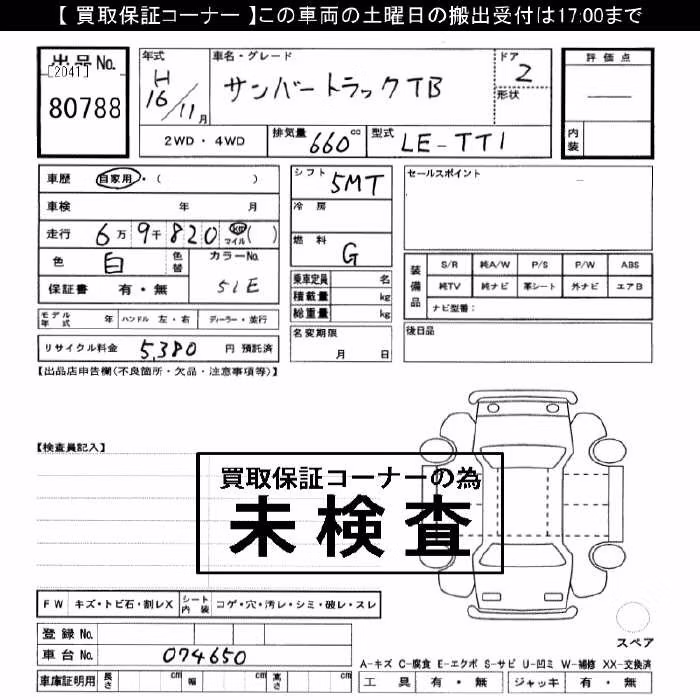 【 買取保証コーナー 】この車両の土曜日の搬出受付は17:00まで
出品No. [2041] 80788
年式 H16/11月 車名・グレード サンバートラックTB ドア 2 形状
評価点 — 内装
2WD・4WD 排気量 660cc 型式 LE-TT1
車歴 自家用・( )
シフト 5MT
セールスポイント
車検 年 月
冷房
走行 6万9千820 km マイル ( )
燃料 G
色 白 色替 カラーNo. 51E
保証書 有・無
装備品 S/R 純A/W P/S P/W ABS
純TV 純ナビ 革シート 外ナビ エアB
ナビ型番:
乗車定員 名
積載量 kg
総重量 kg
モデル年式 年 ハンドル 左・右 ディーラー・並行
名変期限 月 日
後日品
リサイクル料金 5,380 円 預託済
【出品店申告欄(不良箇所・欠品・注意事項等)】
【検査員記入】
買取保証コーナーの為
未検査
FW キズ・トビ石・割レX シート内装 コゲ・穴・汚レ・シミ・破レ・スレ
登録No.
車台No. 074650
スペア
A-キズ C-腐食 E-エクボ S-サビ U-凹ミ W-補修 XX-交換済
車庫証明用 長さ cm 幅 cm 高さ cm
工具 有・無 ジャッキ 有・無